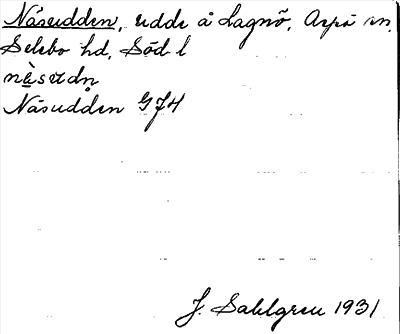 Näsudden, udde å Lagnö, Aspö sn,
Selebo hd, Söd l
nὲsɯdn̥
Näsudden GJH
J. Sahlgren 1931